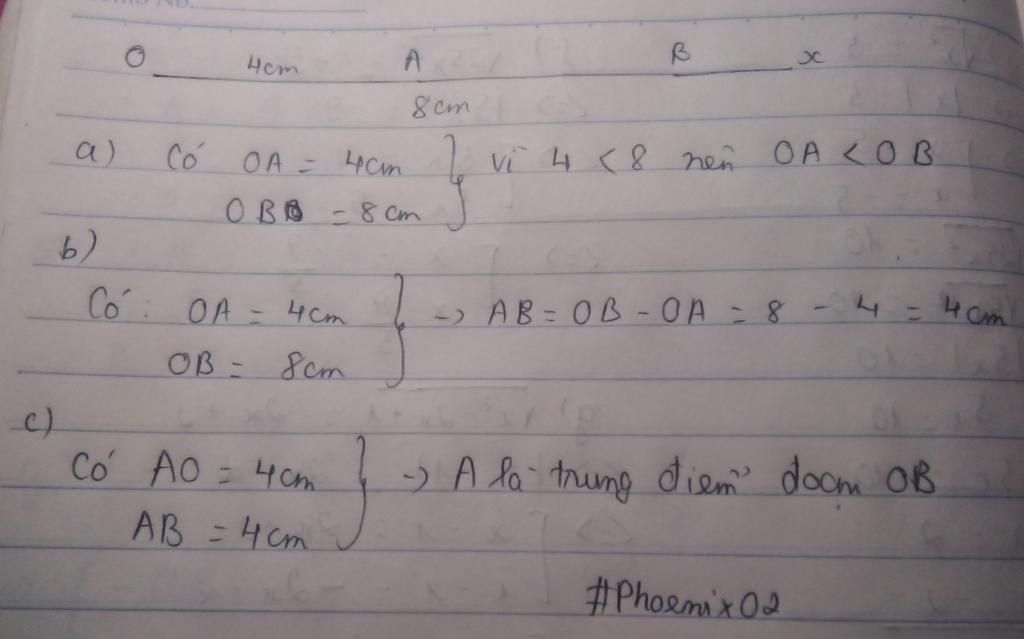 O 4cm A B x
8cm
a) Có OA = 4cm } vì 4 < 8 nên OA < OB
OB = 8cm
b)
Có: OA = 4cm } -> AB = OB - OA = 8 - 4 = 4cm
OB = 8cm
c)
Có AO = 4cm } -> A là trung điểm đoạn OB
AB = 4cm
#Phoenix02